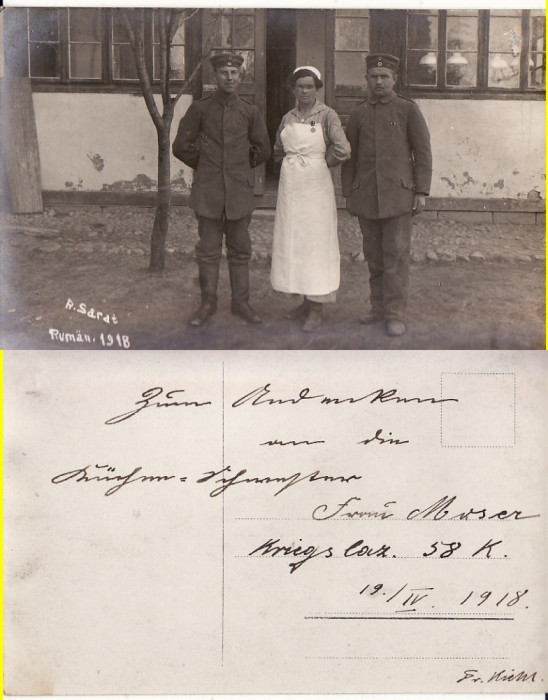 R. Sarat
Rumän. 1918
Zum Andenken
an die
Küchen-Schwester
Frau Moser
Kriegslaz. 58 K.
19./IV. 1918.